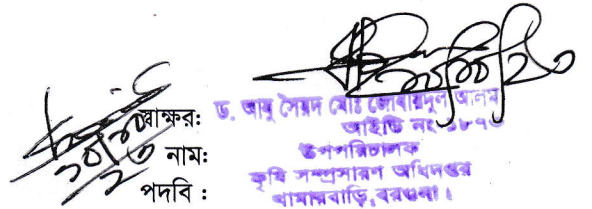 স্বাক্ষর: ড. আবু সৈয়দ মোঃ জোবায়দুল আলম
আইডি নং-১৮৭৩
নাম: উপপরিচালক
কৃষি সম্প্রসারণ অধিদপ্তর
পদবি : খামারবাড়ি, বরগুনা।